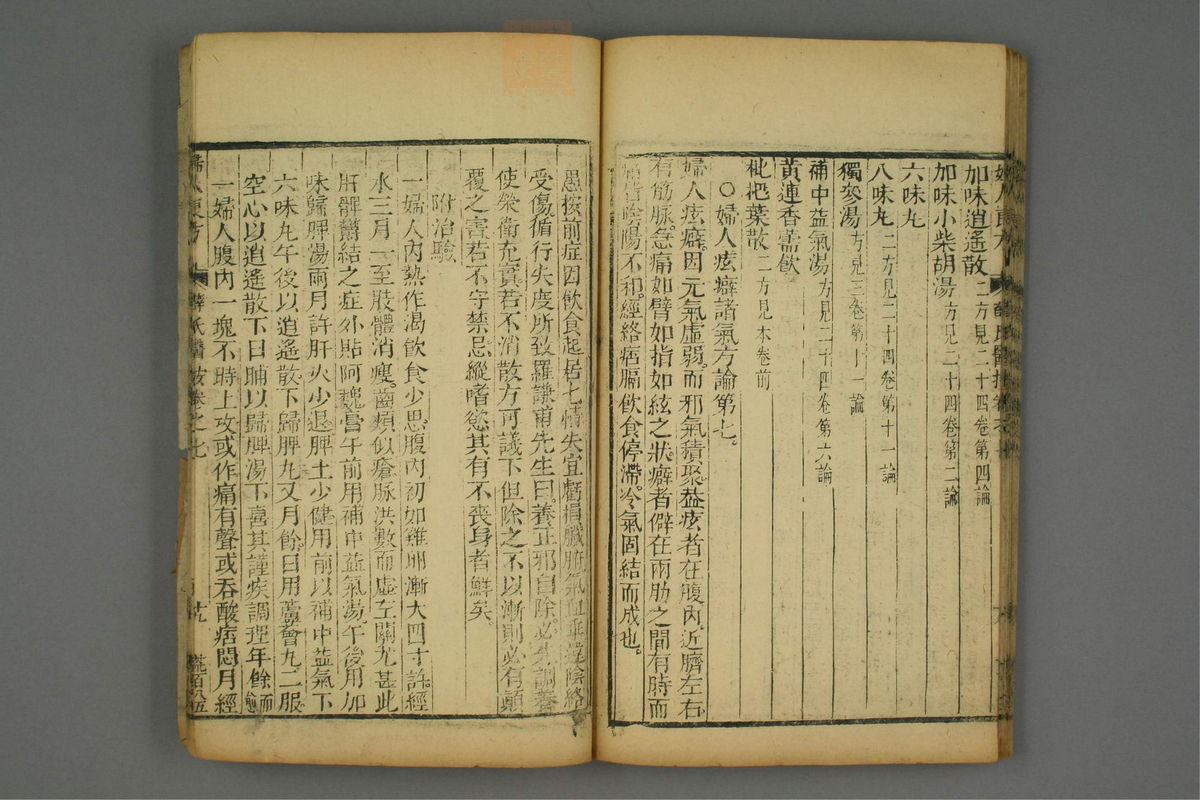 加味逍遙散二方見二十四卷第四論
加味小柴胡湯方見二十四卷第二論
六味丸
八味丸二方見二十四卷第十一論
獨參湯方見三卷第十一論
補中益氣湯方見二十四卷第六論
黃連香薷飲
枇杷葉散二方見本卷前
○婦人痃癖諸氣方論第七
婦人痃癖因元氣虛弱而邪氣積聚蓋痃者在腹內近臍左右
有筋脉急痛如臂如指如絃之狀癖者僻在兩肋之間有時而
痛皆陰陽不和經絡痞膈飲食停滯冷氣固結而成也
愚按前症因飲食起居七情失宜虧損臟腑氣血乖違陰絡
受傷循行失度所致羅謙甫先生曰養正邪自除必先調養
使榮衛充實若不消散方可議下但除之不以漸則必有顛
覆之害若不守禁忌縱嗜慾其有不喪身者鮮矣
附治驗
一婦人內熱作渴飲食少思腹內初如雞卵漸大四寸許經
水三月一至肢體消瘦齒頰似瘡脉洪數而虛左關尤甚此
肝脾鬱結之症外貼阿魏膏午前用補中益氣湯午後用加
味歸脾湯兩月許肝火少退脾土少健用前以補中益氣下
六味丸午後以逍遙散下歸脾丸又月餘日用蘆薈丸二服
空心以逍遙散下日晡以歸脾湯下喜其謹疾調理年餘而愈
一婦人腹內一塊不時上攻或作痛有聲或吞酸痞悶月經
婦人良方 薛氏醫按卷之七